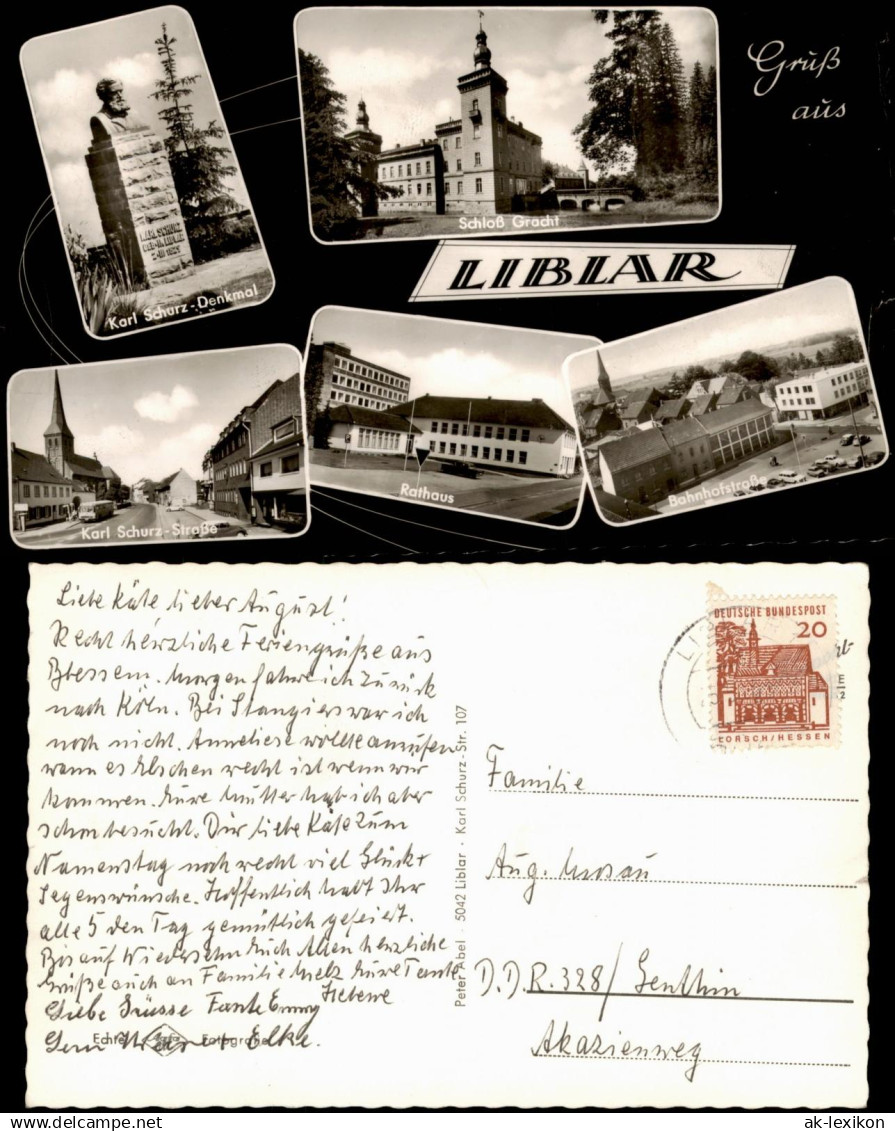 Gruß
aus
Schloß Gracht
KARL SCHURZ
Karl Schurz-Denkmal
LIBLAR
Karl Schurz-Straße
Rathaus
Bahnhofstraße
Liebe Käte lieber August!
Recht herzliche Feriengrüße aus
Blessem. Morgen fahre ich zurück
nach Köln. Bei Stangiers war ich
noch nicht. Anneliese wollte anrufen
wann es Elschen recht ist wenn wir
kommen. Eure Mutter hab ich aber
schon besucht. Dir liebe Käte zum
Namenstag noch recht viel Glück +
Segenswünsche. Hoffentlich habt Ihr
alle 5 den Tag gemütlich gefeiert.
Bis auf Wiedersehn Euch Allen herzliche
Grüße auch an Familie Melz Eure Tante
Helene
Liebe Grüsse Tante Emmy
Elke.
Echte Fotografie
Peter Abel · 5042 Liblar · Karl Schurz-Str. 107
DEUTSCHE BUNDESPOST
20
LORSCH/HESSEN
Familie
Aug. Mosau
D.D.R. 328/Genthin
Akazienweg
ak-lexikon